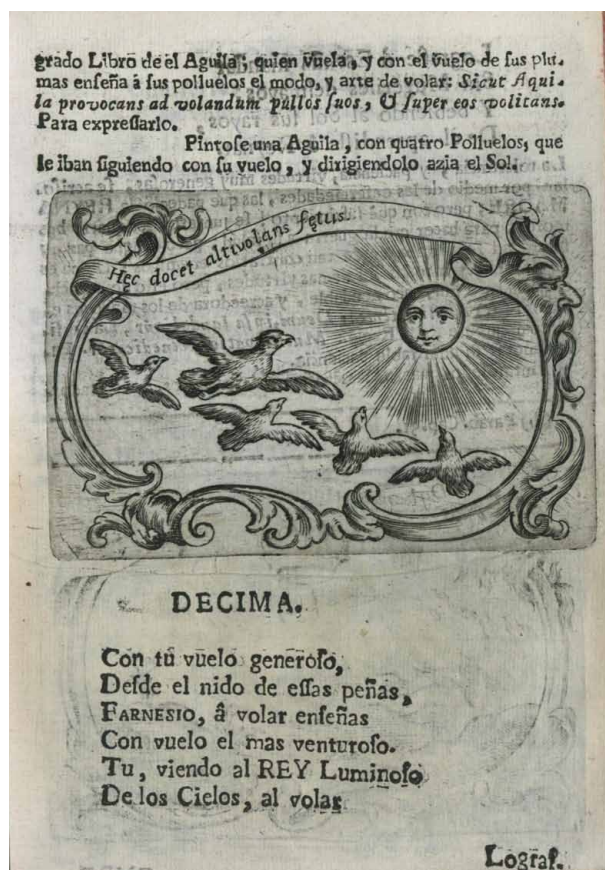 grado Libro de el Aguila; quien vuela, y con el vuelo de sus plu-
mas enseña â sus polluelos el modo, y arte de volar: Sicut Aqui-
la provocans ad volandum pullos suos, & super eos volitans.
Para expressarlo.
Pintose una Aguila, con quatro Polluelos, que
le iban siguiendo con su vuelo, y dirigiendolo azia el Sol.
Hęc docet altivolans fętus.
DECIMA.
Con tú vuelo generoso,
Desde el nido de essas peñas,
FARNESIO, â volar enseñas
Con vuelo el mas venturoso.
Tu, viendo al REY Luminoso
De los Cielos, al volar
Lograf.